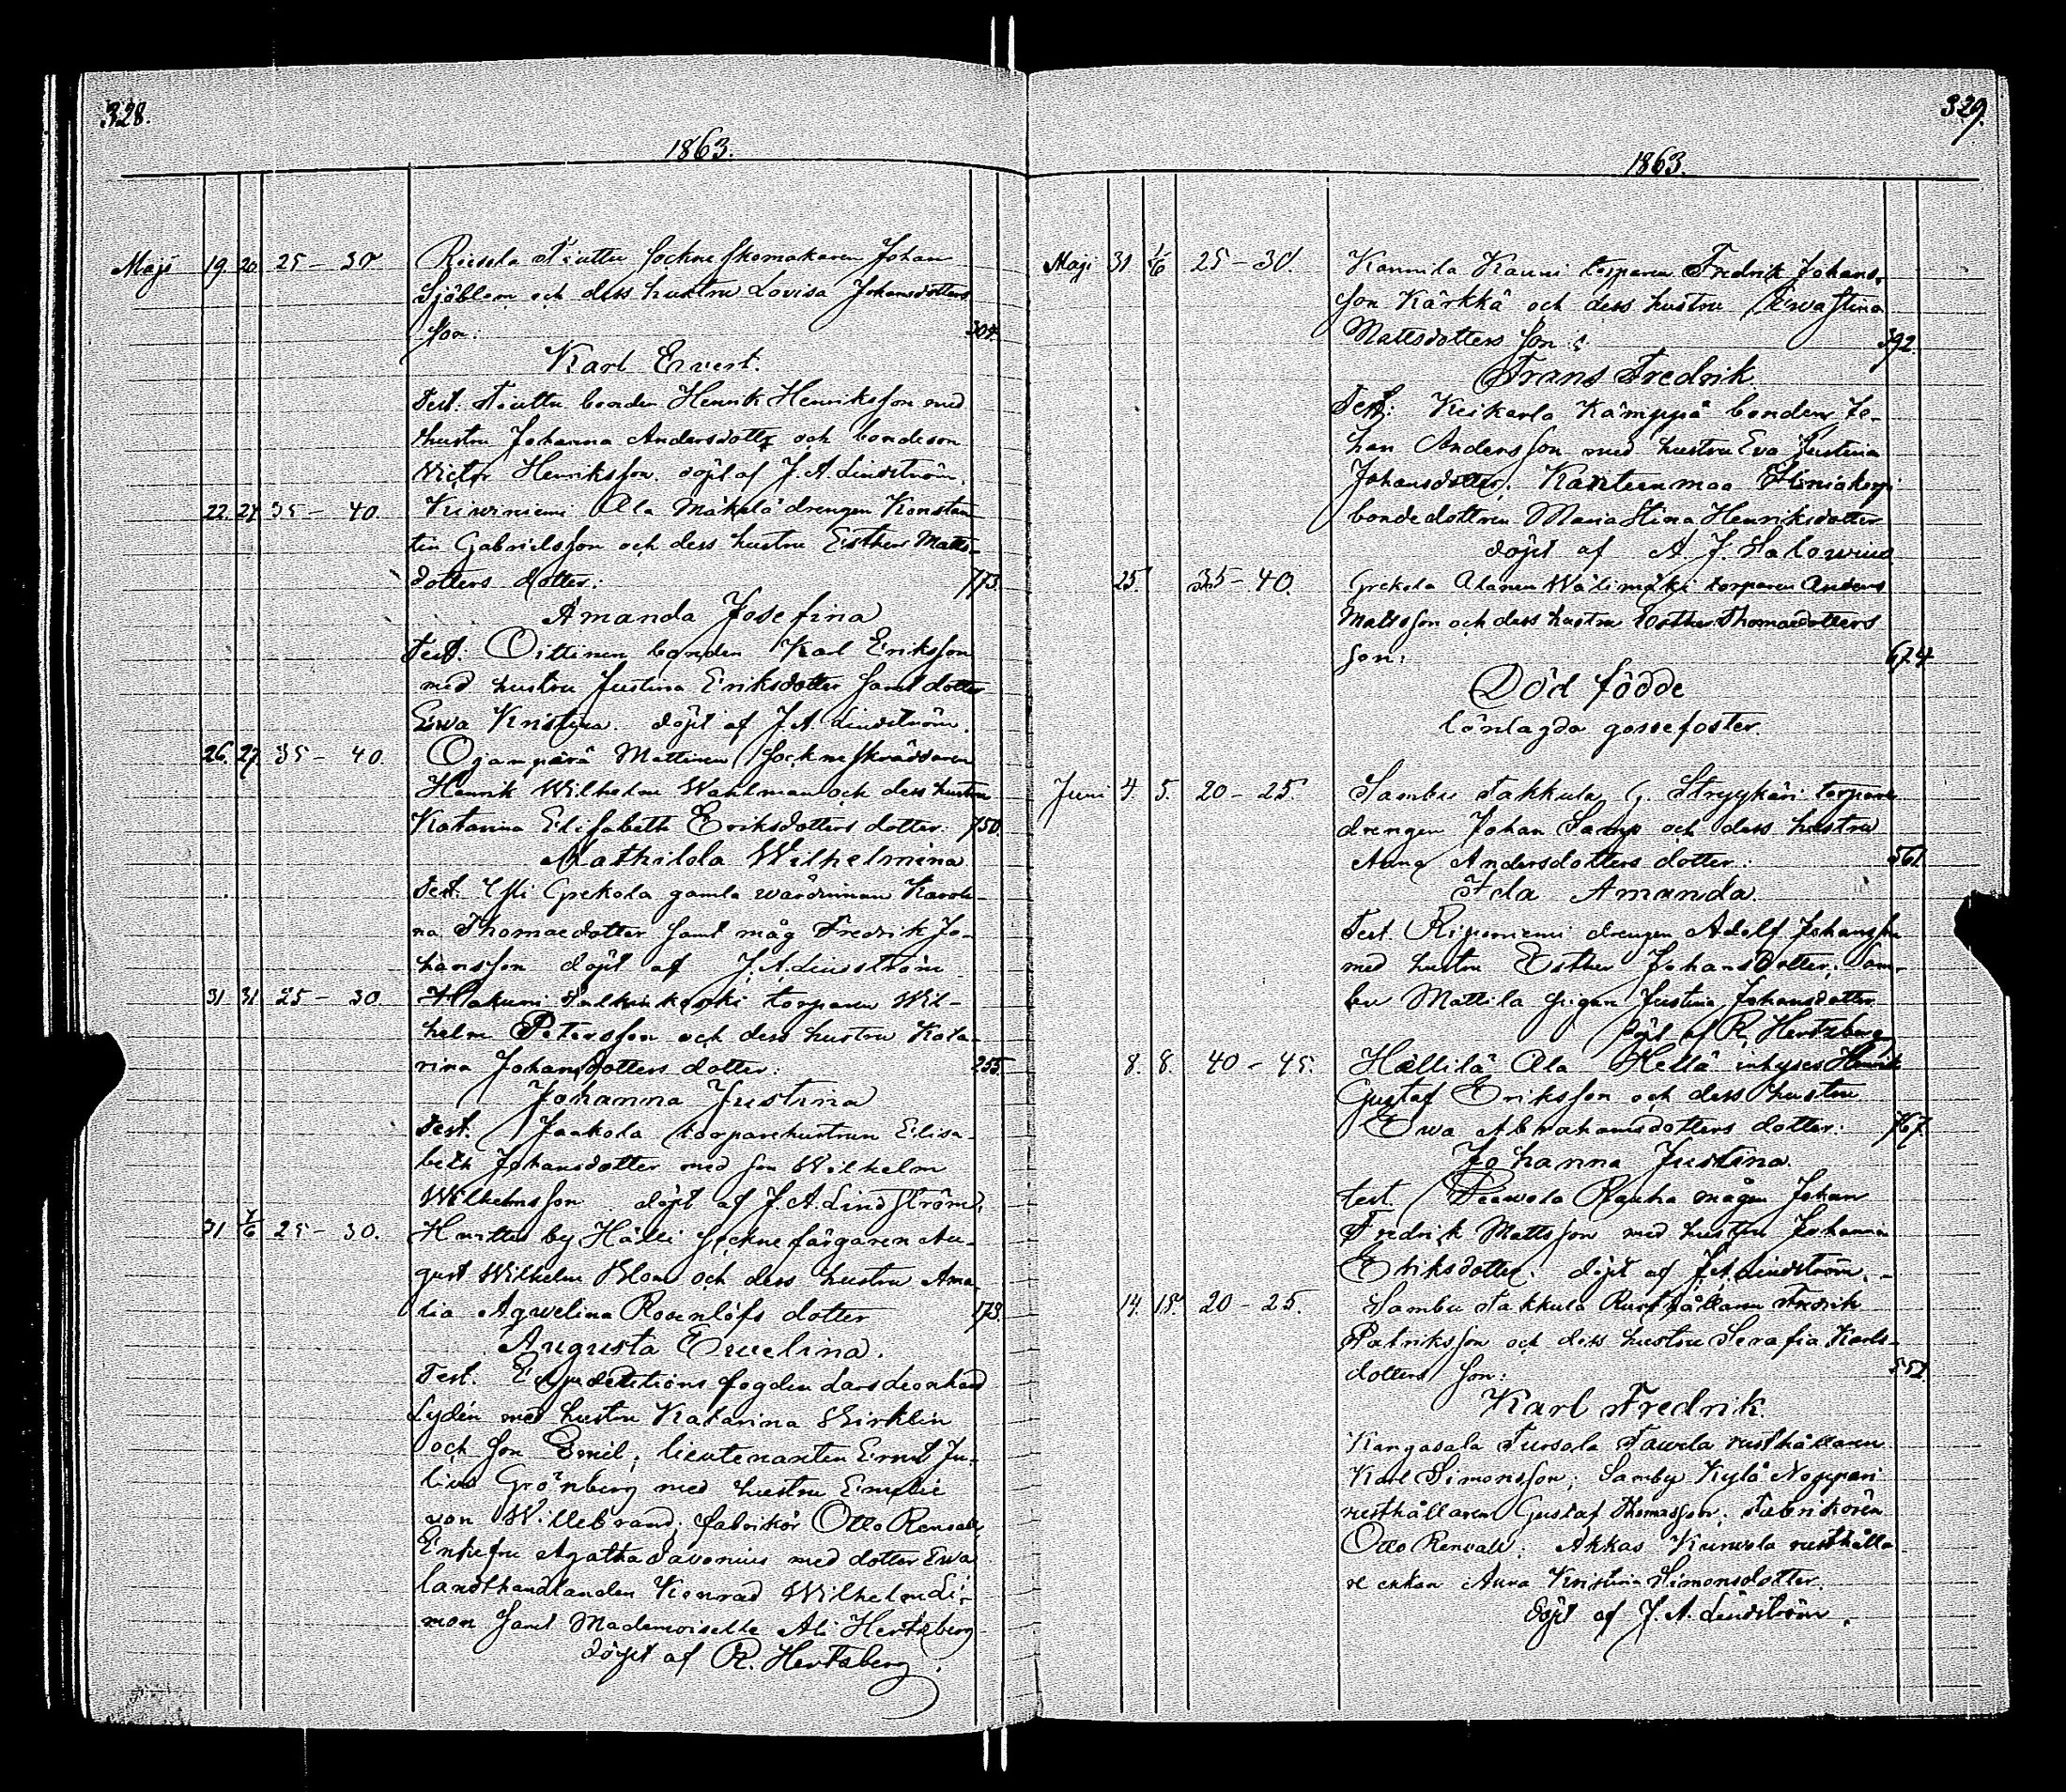 328.
1863.
Maji 19. 20. 25 - 30 Sockne skomakaren Johan
Sjöblom och dess hustru Lovisa Johansdotters
son: 304.
Karl Evert.
Test: bonden Henrik Henriksson med
hustru Johanna Andersdotter och bondeson
Victor Henriksson. döpt af J. A. Lindström.
22. 24 35 - 40. Kiwiniemi Ala Mäkelä drengen Konstan
tin Gabrielsson och dess hustru Esther Matts-
dotters dotter: 773.
Amanda Josefina
Test: Oittinen bonden Karl Eriksson
med hustru Justina Eriksdotter samt dotter
Ewa Kristina. döpt af J. A. Lindström.
26. 27. 35 - 40. Ojanperä Mattinen Sockne skräddaren
Henrik Wilhelm Wahlman och dess hustru
Katarina Elisabeth Eriksdotters dotter: 750.
Mathilda Wilhelmina
Test. Grekola gamla wärdinnan Karoli-
na Thomaedotter samt måg Fredrik Jo-
hansson döpt af J. A. Lindström
31 31 25 - 30. Hakuni torparen Wil-
helm Petersson och dess hustru Kata-
rina Johansdotters dotter: 255.
Johanna Justina
Test. Jaakola torparehustrun Elisa-
beth Johansdotter med son Wilhelm
Wilhelmsson. döpt af J. A. Lindström.
31 1/6 25 - 30. Huittis by Hälli sockne färgaren Au-
gust Wilhelm Blom och dess hustru Ama-
lia Agwelina Rosenlöfs dotter 173.
Augusta Ewelina.
Test. Expeditions fogden Lars Leonhard
Lydén med hustru Katarina Birklin
och son Emil; lieutenanten Ernst Ju-
lius Grönberg med hustru Emelie
von Willebrand; fabrikör Otto Renvall,
Enkefru Agatha Savonius med dotter Ewa
landthandlanden Konrad Wilhelm Li-
mon samt Mademoiselle Ali Hertzberg
döpt af R. Hertzberg.
329.
1863.
Maji 31 1/6 25 - 30. Kannila Kauni torparen Fredrik Johans-
son Kärkkä och dess hustru Ewa Stina
Mattsdotters son: 392.
Frans Fredrik
Test: Keikarla Kämppä bonden Jo-
han Andersson med hustru Eva Justina
Johansdotter; Kanteenmaa
bondedottren Maria Stina Henriksdotter
döpt af A. J. Salowius
25. 35 - 40. Grekola Alanen Wälimäki torparen Anders
Mattsson och dess hustru Esther Thomaedotters
son: 674
Död födde
lönlagda gossefoster.
Juni 4. 5. 20 - 25. Sambu Takkula g. Stryykäri torpare
drengen Johan Samp och dess hustru
Anna Andersdotters dotter: 561
Ida Amanda.
Test. Riponiemi drengen Adolf Johansson
med hustru Esther Johansdotter. Sam-
bu Mattila pigan Justina Johansdotter.
döpt af R. Hertzberg
8. 8. 40 - 45. Hällilä Ala Hellä inhyses Henrik
Gustaf Eriksson och dess hustru
Ewa Abrahamsdotters dotter: 767.
Johanna Justina.
test. Rauha mågen Johan
Fredrik Mattsson med hustru Johanna
Eriksdotter. döpt af J. A. Lindström.
14. 15. 20 - 25. Sambu Takkula Rusthållaren Fredrik
Patriksson och dess hustru Serafia Karls-
dotters son: 552
Karl Fredrik.
Kangasala Tursola Tawela rusthållaren
Karl Simonsson; Samby Kylä Noppari
rusthållaren Gustaf Thomasson; Fabrikören
Otto Renvall; Akkas Kurwola rusthålla
re enkan Anna Kristina Simonsdotter.
döpt af J. A. Lindström.